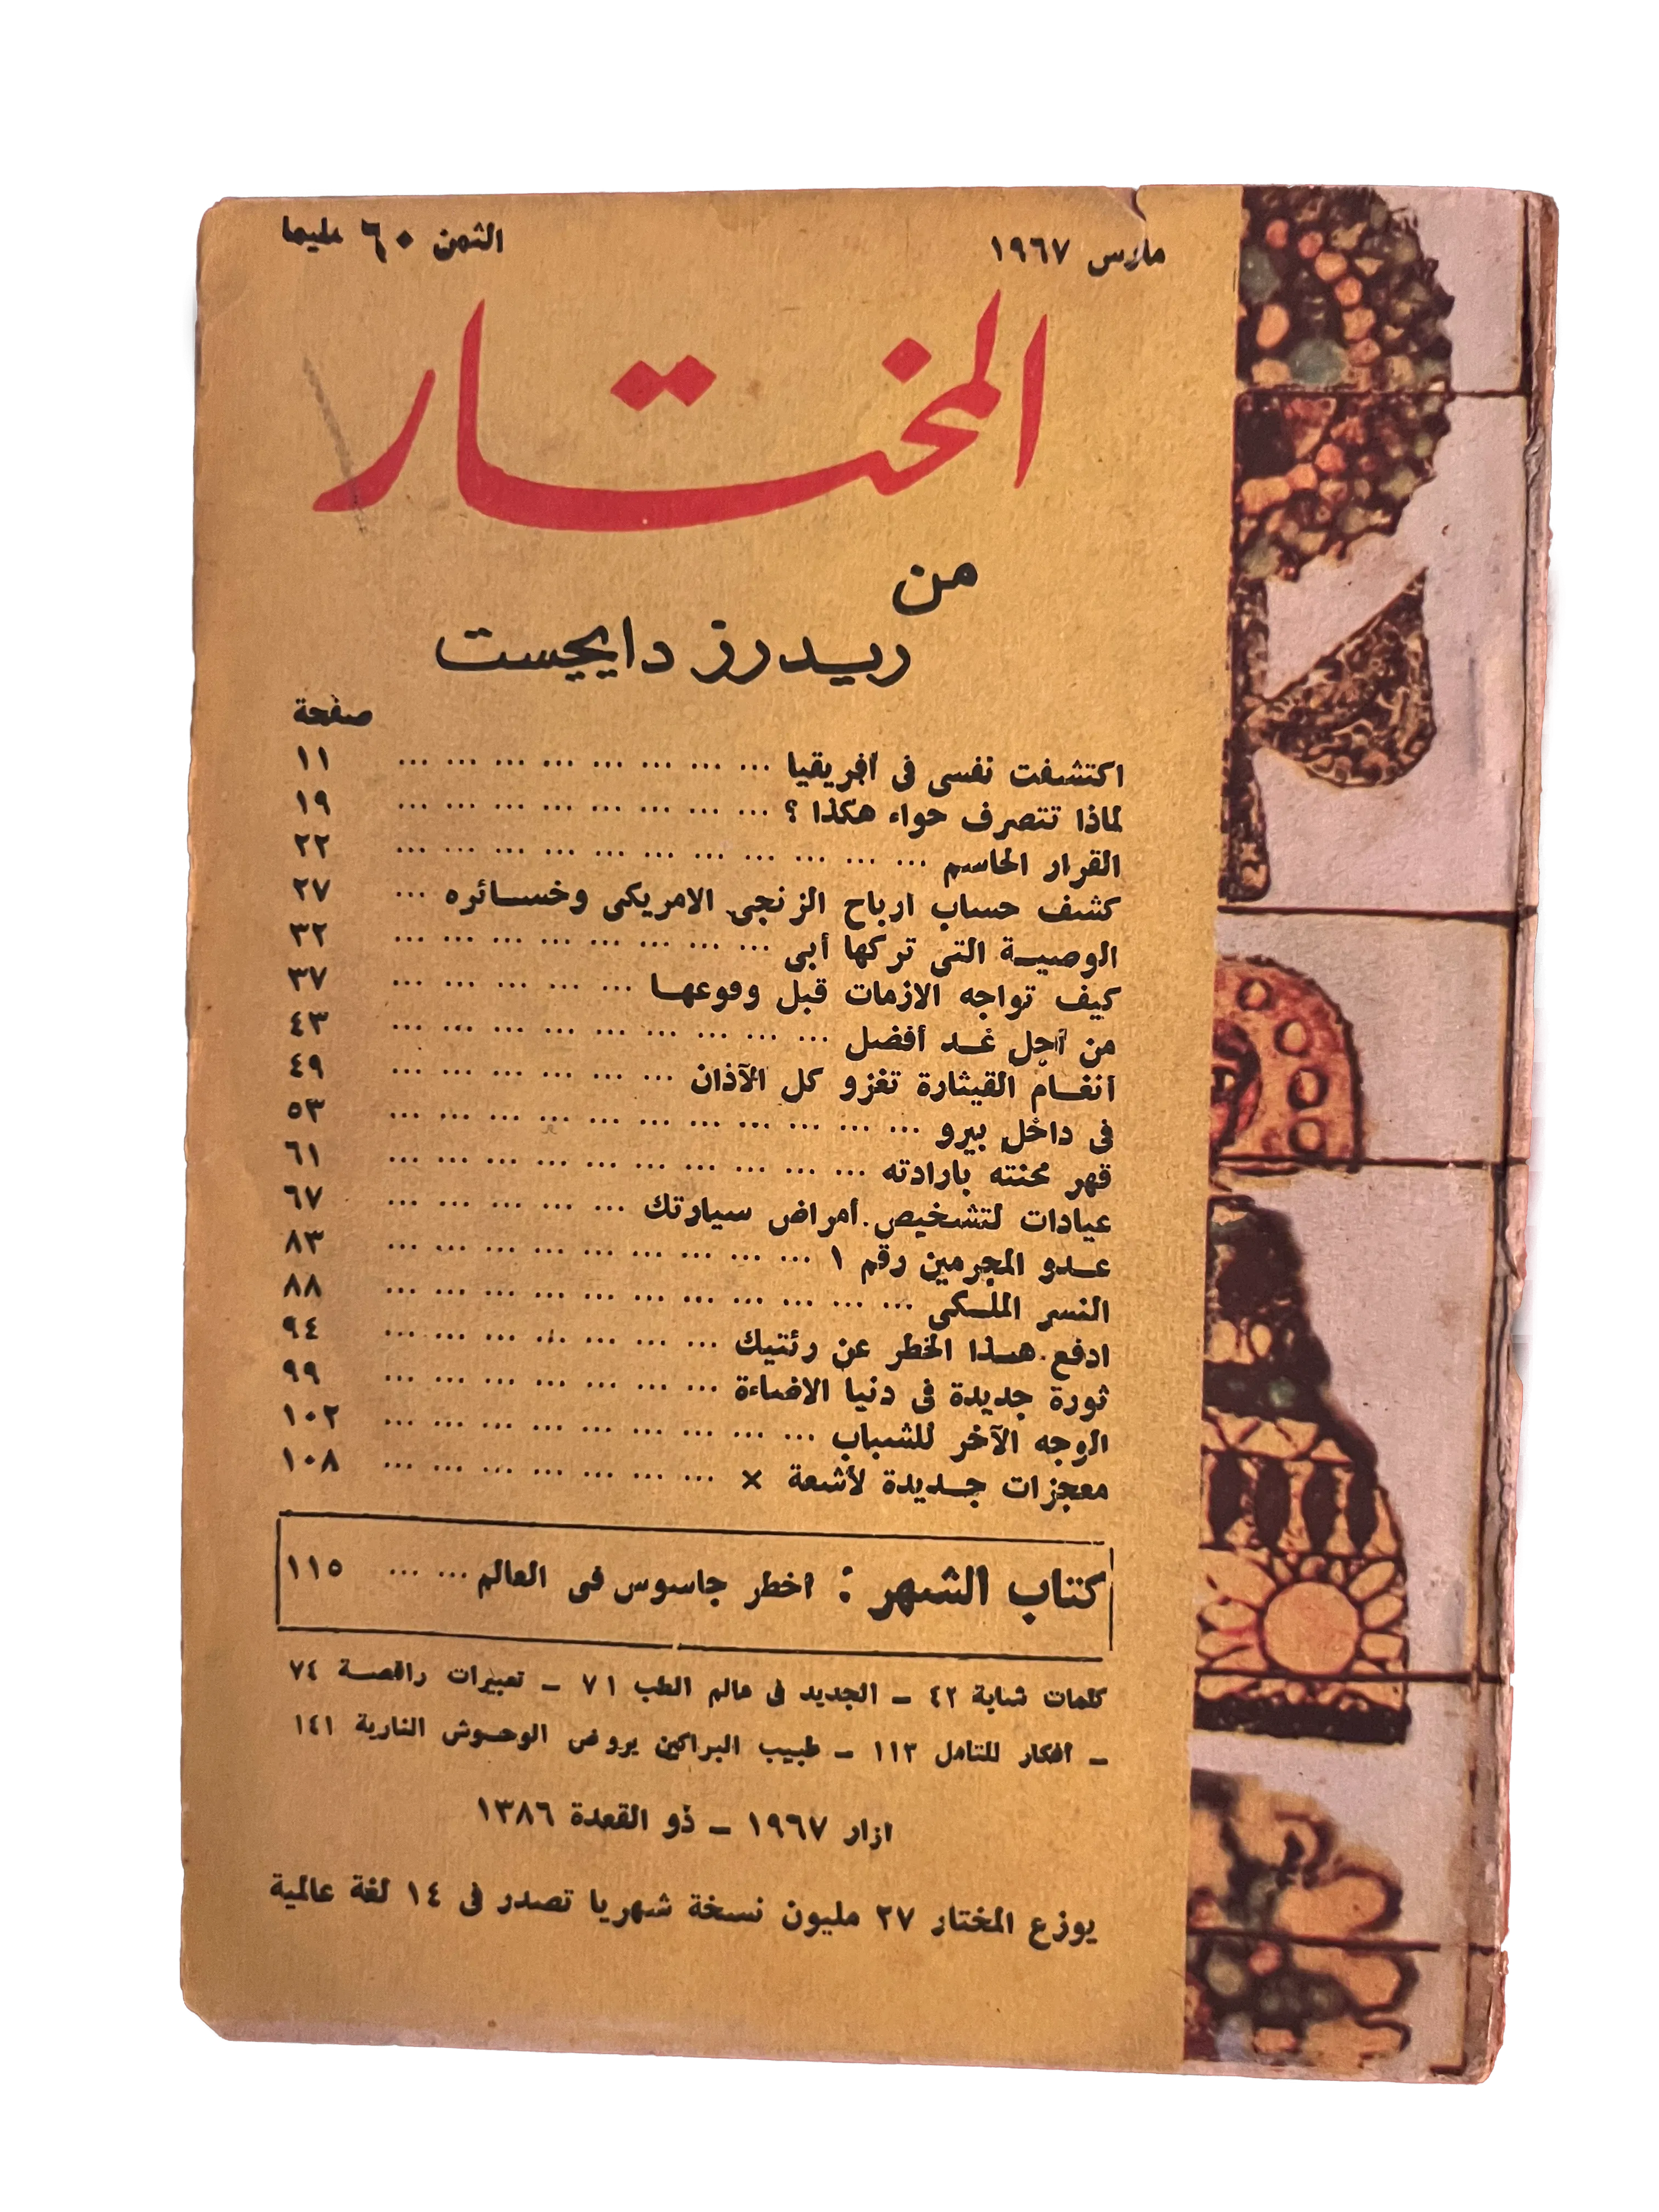 مارس ١٩٦٧
الثمن ٦٠ مليما
المختار
من
ريدرز دايجست
صفحة
اكتشفت نفسى فى أفريقيا ... ... ... ... ... ... ... ... ١١
لماذا تتصرف حواء هكذا ؟ ... ... ... ... ... ... ... ... ١٩
القرار الحاسم ... ... ... ... ... ... ... ... ... ... ... ٢٢
كشف حساب ارباح الزنجى الامريكى وخسائره ... ٢٧
الوصية التى تركها أبى ... ... ... ... ... ... ... ... ٣٢
كيف تواجه الازمات قبل وقوعها ... ... ... ... ... ٣٧
من أجل غد أفضل ... ... ... ... ... ... ... ... ... ٤٣
أنغام القيثارة تغزو كل الآذان ... ... ... ... ... ... ٤٩
فى داخل بيرو ... ... ... ... ... ... ... ... ... ... ... ٥٣
قهر محنته بارادته ... ... ... ... ... ... ... ... ... ... ٦١
عيادات لتشخيص أمراض سيارتك ... ... ... ... ... ٦٧
عدو المجرمين رقم ١ ... ... ... ... ... ... ... ... ... ٨٣
النسر الملكى ... ... ... ... ... ... ... ... ... ... ... ٨٨
ادفع هذا الخطر عن رئتيك ... ... ... ... ... ... ... ٩٤
ثورة جديدة فى دنيا الاضاءة ... ... ... ... ... ... ... ٩٩
الوجه الآخر للشباب ... ... ... ... ... ... ... ... ... ١٠٢
معجزات جديدة لأشعة × ... ... ... ... ... ... ... ١٠٨
كتاب الشهر : اخطر جاسوس فى العالم ... ... ١١٥
كلمات شابة ٤٢ – الجديد فى عالم الطب ٧١ – تعبيرات راقصة ٧٤
– أفكار للتأمل ١١٣ – طبيب البراكين يروض الوحوش النارية ١٤١
ازار ١٩٦٧ – ذو القعدة ١٣٨٦
يوزع المختار ٢٧ مليون نسخة شهريا تصدر فى ١٤ لغة عالمية